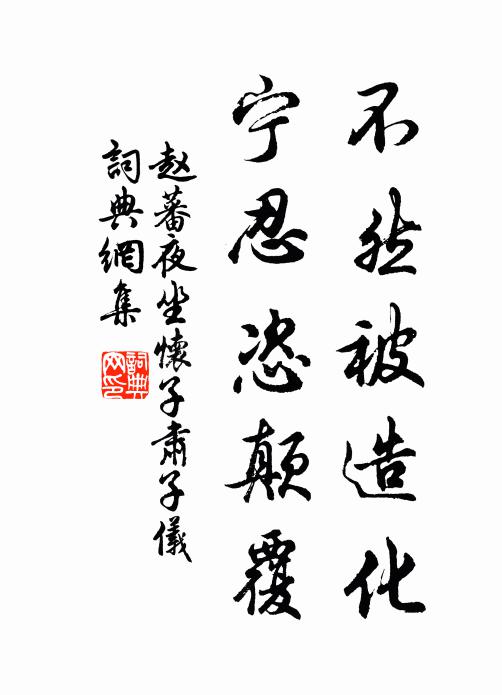 不然被造化
宁忍恣颠覆
赵蕃夜坐懷子肅子儀
詞典網集
詞典
网印